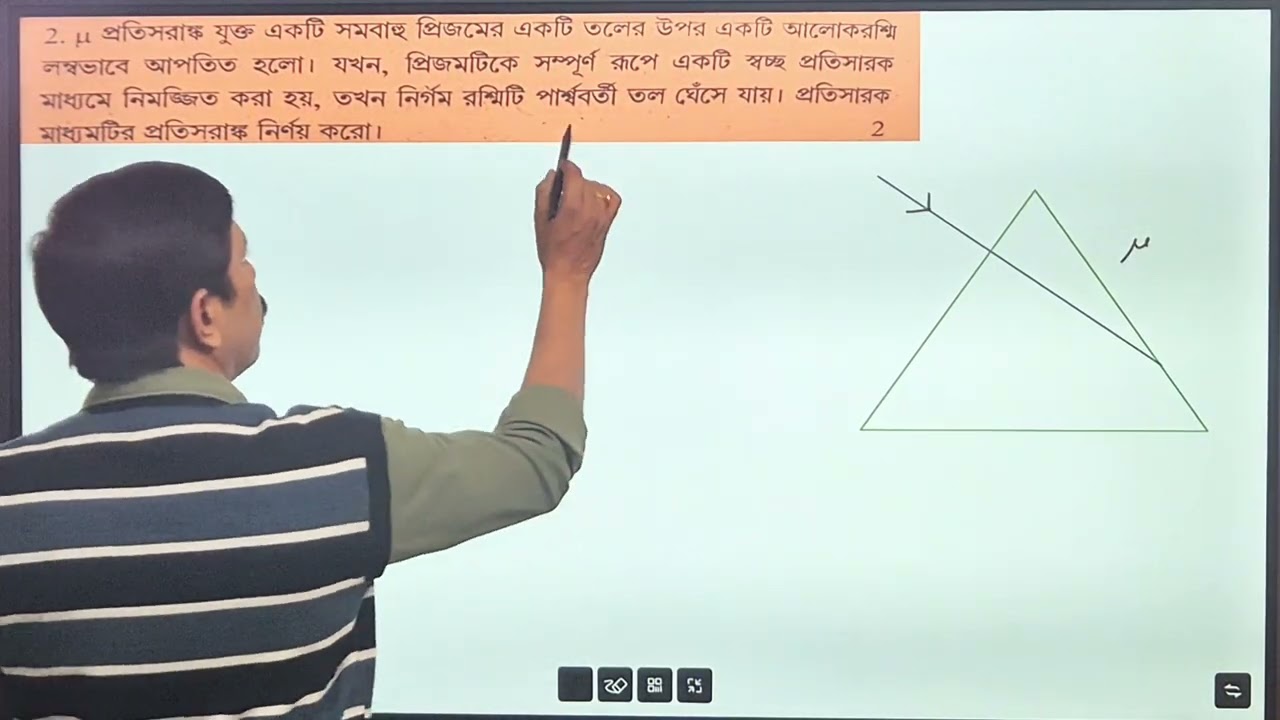 2. μ প্রতিসরাঙ্ক যুক্ত একটি সমবাহু প্রিজমের একটি তলের উপর একটি আলোকরশ্মি
লম্বভাবে আপতিত হলো। যখন, প্রিজমটিকে সম্পূর্ণ রূপে একটি স্বচ্ছ প্রতিসারক
মাধ্যমে নিমজ্জিত করা হয়, তখন নির্গম রশ্মিটি পার্শ্ববর্তী তল ঘেঁসে যায়। প্রতিসারক
মাধ্যমটির প্রতিসরাঙ্ক নির্ণয় করো। 2
μ